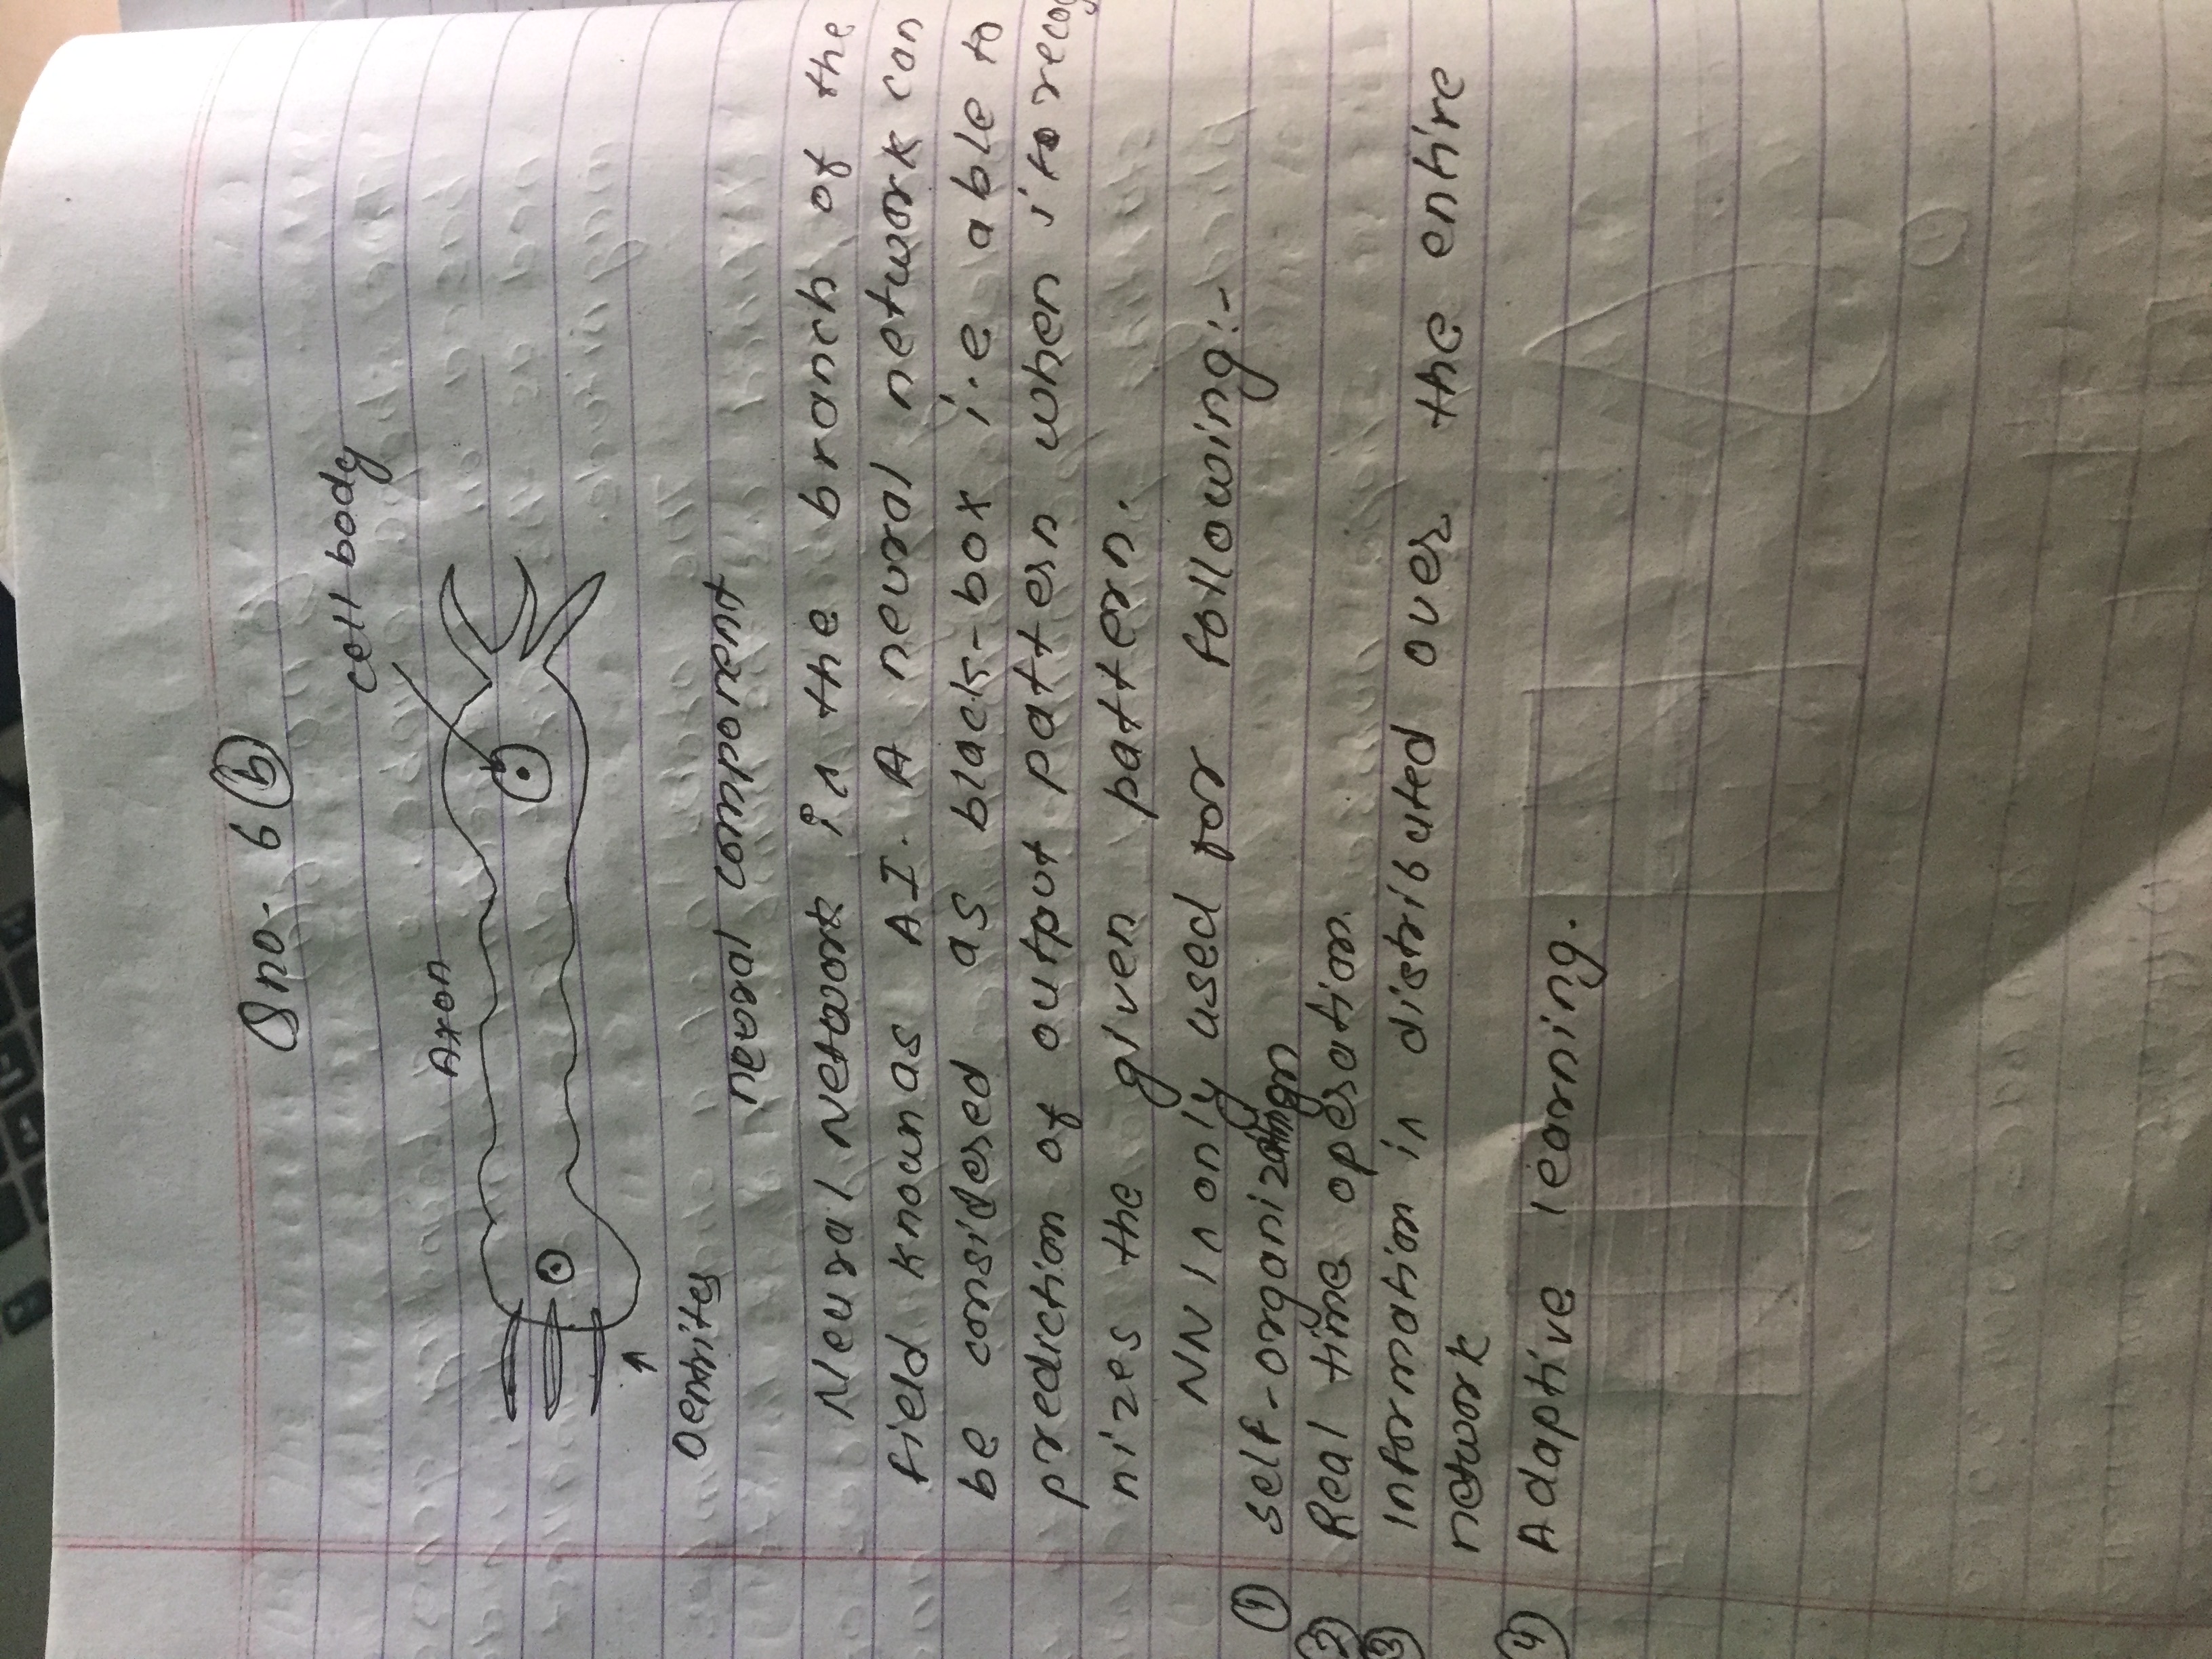 Qno. 6 (b)
cell body
Axon
Dentrites
neural component
Neural Network is the branch of the
field known as AI. A neural network can
be considered as black-box i.e able to
prediction of output pattern when it recog
nizes the given pattern.
NN is only used for following:-
(1) self-organization
(2) Real time operation.
(3) Information is distributed over the entire
network
(4) Adaptive learning.